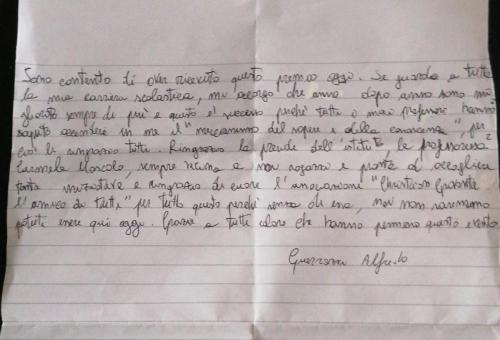 Sono contento di aver ricevuto questo premio oggi. Se guardo a tutta
la mia carriera scolastica, mi accorgo che anno dopo anno sono
sempre di più e questo è successo perché tutti i miei professori hanno
saputo accendere in me il "meccanismo del sapere e della conoscenza", per
ciò li ringrazio tutti. Ringrazio la preside dell'istituto, la professoressa
Carmela Mascolo, sempre vicina a noi ragazzi e pronta ad accogliere
iniziative e ringrazio di cuore l'associazione "Christian
l'amico di tutti" per tutto questo perché senza di essa, noi non saremmo
potuti essere qui oggi. Grazie a tutti coloro che hanno permesso questo evento
Alfredo